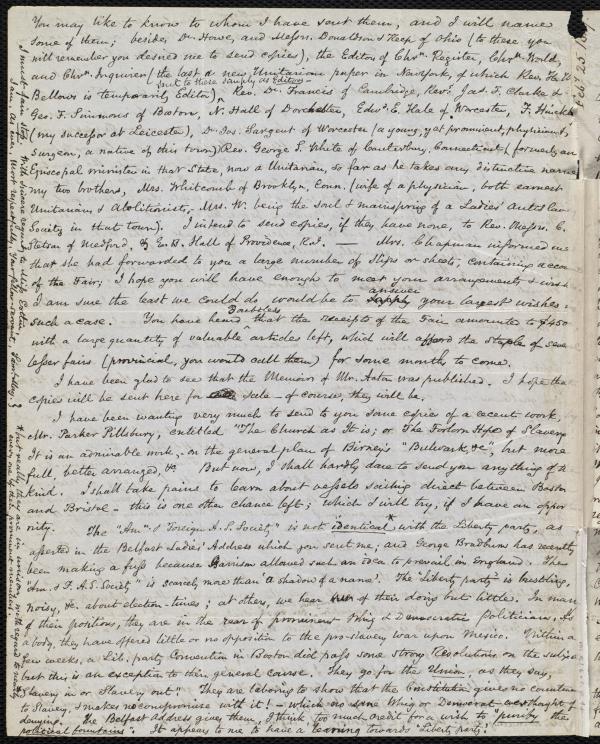 You may like to know to whom I have sent them, and I will name
some of them; besides Dr. Howe, and Messrs. Donaldson & Keep of Ohio (to these you
will remember you desired me to send copies), the Editors of Chrn. Register, Chrn. World,
and Chrn. Inquirer (the last a new Unitarian paper in New York, of which Rev. H. W.
Bellows is temporarily Editor), Rev. Dr. Francis of Cambridge, Revs. Jas. F. Clarke &
Geo. F. Simmons of Boston, N. Hall of Dorchester, Edwd. E. Hale of Worcester, F. Hinckley
(my successor at Leicester), Dr. Jos. Sargent of Worcester (a young, yet prominent, physician &
surgeon, a native of this town) Rev. George S. White of Canterbury, Connecticut (formerly an
Episcopal minister in that State, now a Unitarian, so far as he takes any distinctive name
my two brothers, Mrs. Whitcomb of Brooklyn, Conn. (wife of a physician, both earnest
Unitarians & Abolitionists, – Mrs. W. being the soul & mainspring of a Ladies' Antislav
Society in that town). I intend to send copies, if they have none, to Rev. Messrs. C.
Stetson of Medford, & E. B. Hall of Providence, R.I. — Mrs. Chapman informed me
that she had forwarded to you a large number of slips or sheets, containing accou
of the Fair; I hope you will have enough to meet your arrangements & wish
I am sure the least we could do would be to answer your largest wishes
such a case. You have heard doubtless that the receipts of the Fair amounted to $450
with a large quantity of valuable articles left, which will afford the staple of seve
lesser fairs (provincial, you would call them) for some months to come.
I have been glad to see that the Memoir of Mr. Aston was published. I hope tha
copies will be sent here for sale – of course, they will be.
I have been wanting very much to send to you some copies of a recent work,
Mr. Parker Pillsbury, entitled "The Church as It is; or The Forlorn Hope of Slavery
It is an admirable work, – on the general plan of Birney's "Bulwark, &c", but more
full, better arranged, &c. But now, I shall hardly dare to send you anything of th
kind. I shall take pains to learn about vessels sailing direct between Boston
and Bristol – this is one other chance left; which I will try, if I have an oppor
nity. The "Am. & Foreign A. S. Society" is not identical with the Liberty party, as
asserted in the Belfast Ladies' Address which you sent me; and George Bradburn has recently
been making a fuss because Garrison allowed such an idea to prevail in England. The
"Am. & F. A. S. Society" is scarcely more than 'a shadow of a name'. The Liberty party is bustling,
noisy, &c. about election-times; at others, we hear of their doing but little. In many
of their positions, they are in the rear of prominent Whig & Democratic Politicians. As
a body, they have offered little or no opposition to the pro-slavery war upon Mexico. Within a
few weeks, a Lib. party Convention in Boston did pass some strong Resolutions on the subject
but this is an exception to their general course. They go for the Union, as they say,
"Slavery in or Slavery out". They are laboring to show that the Constitution gives no countena
to Slavery, & makes no compromise with it! – which no sane Whig or Democrat ever thought of
denying. The Belfast Address gives them, I think, too much credit for a wish to "purify the
political fountains". It appears to me to have a leaning towards Liberty party!
I must fain stop. With sincere regards to Miss Estlin,
I am, dear Sir, most respectfully, Your fellow-servant, Saml. May, Jr.